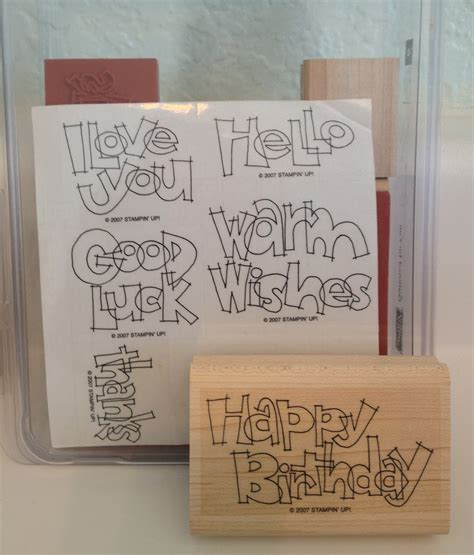 I Love
you
© 2007 STAMPIN' UP!
Hello
© 2007 STAMPIN' UP!
Good
Luck
© 2007 STAMPIN' UP!
Warm
Wishes
© 2007 STAMPIN' UP!
thanks
© 2007 STAMPIN' UP!
Happy
Birthday
© 2007 STAMPIN' UP!